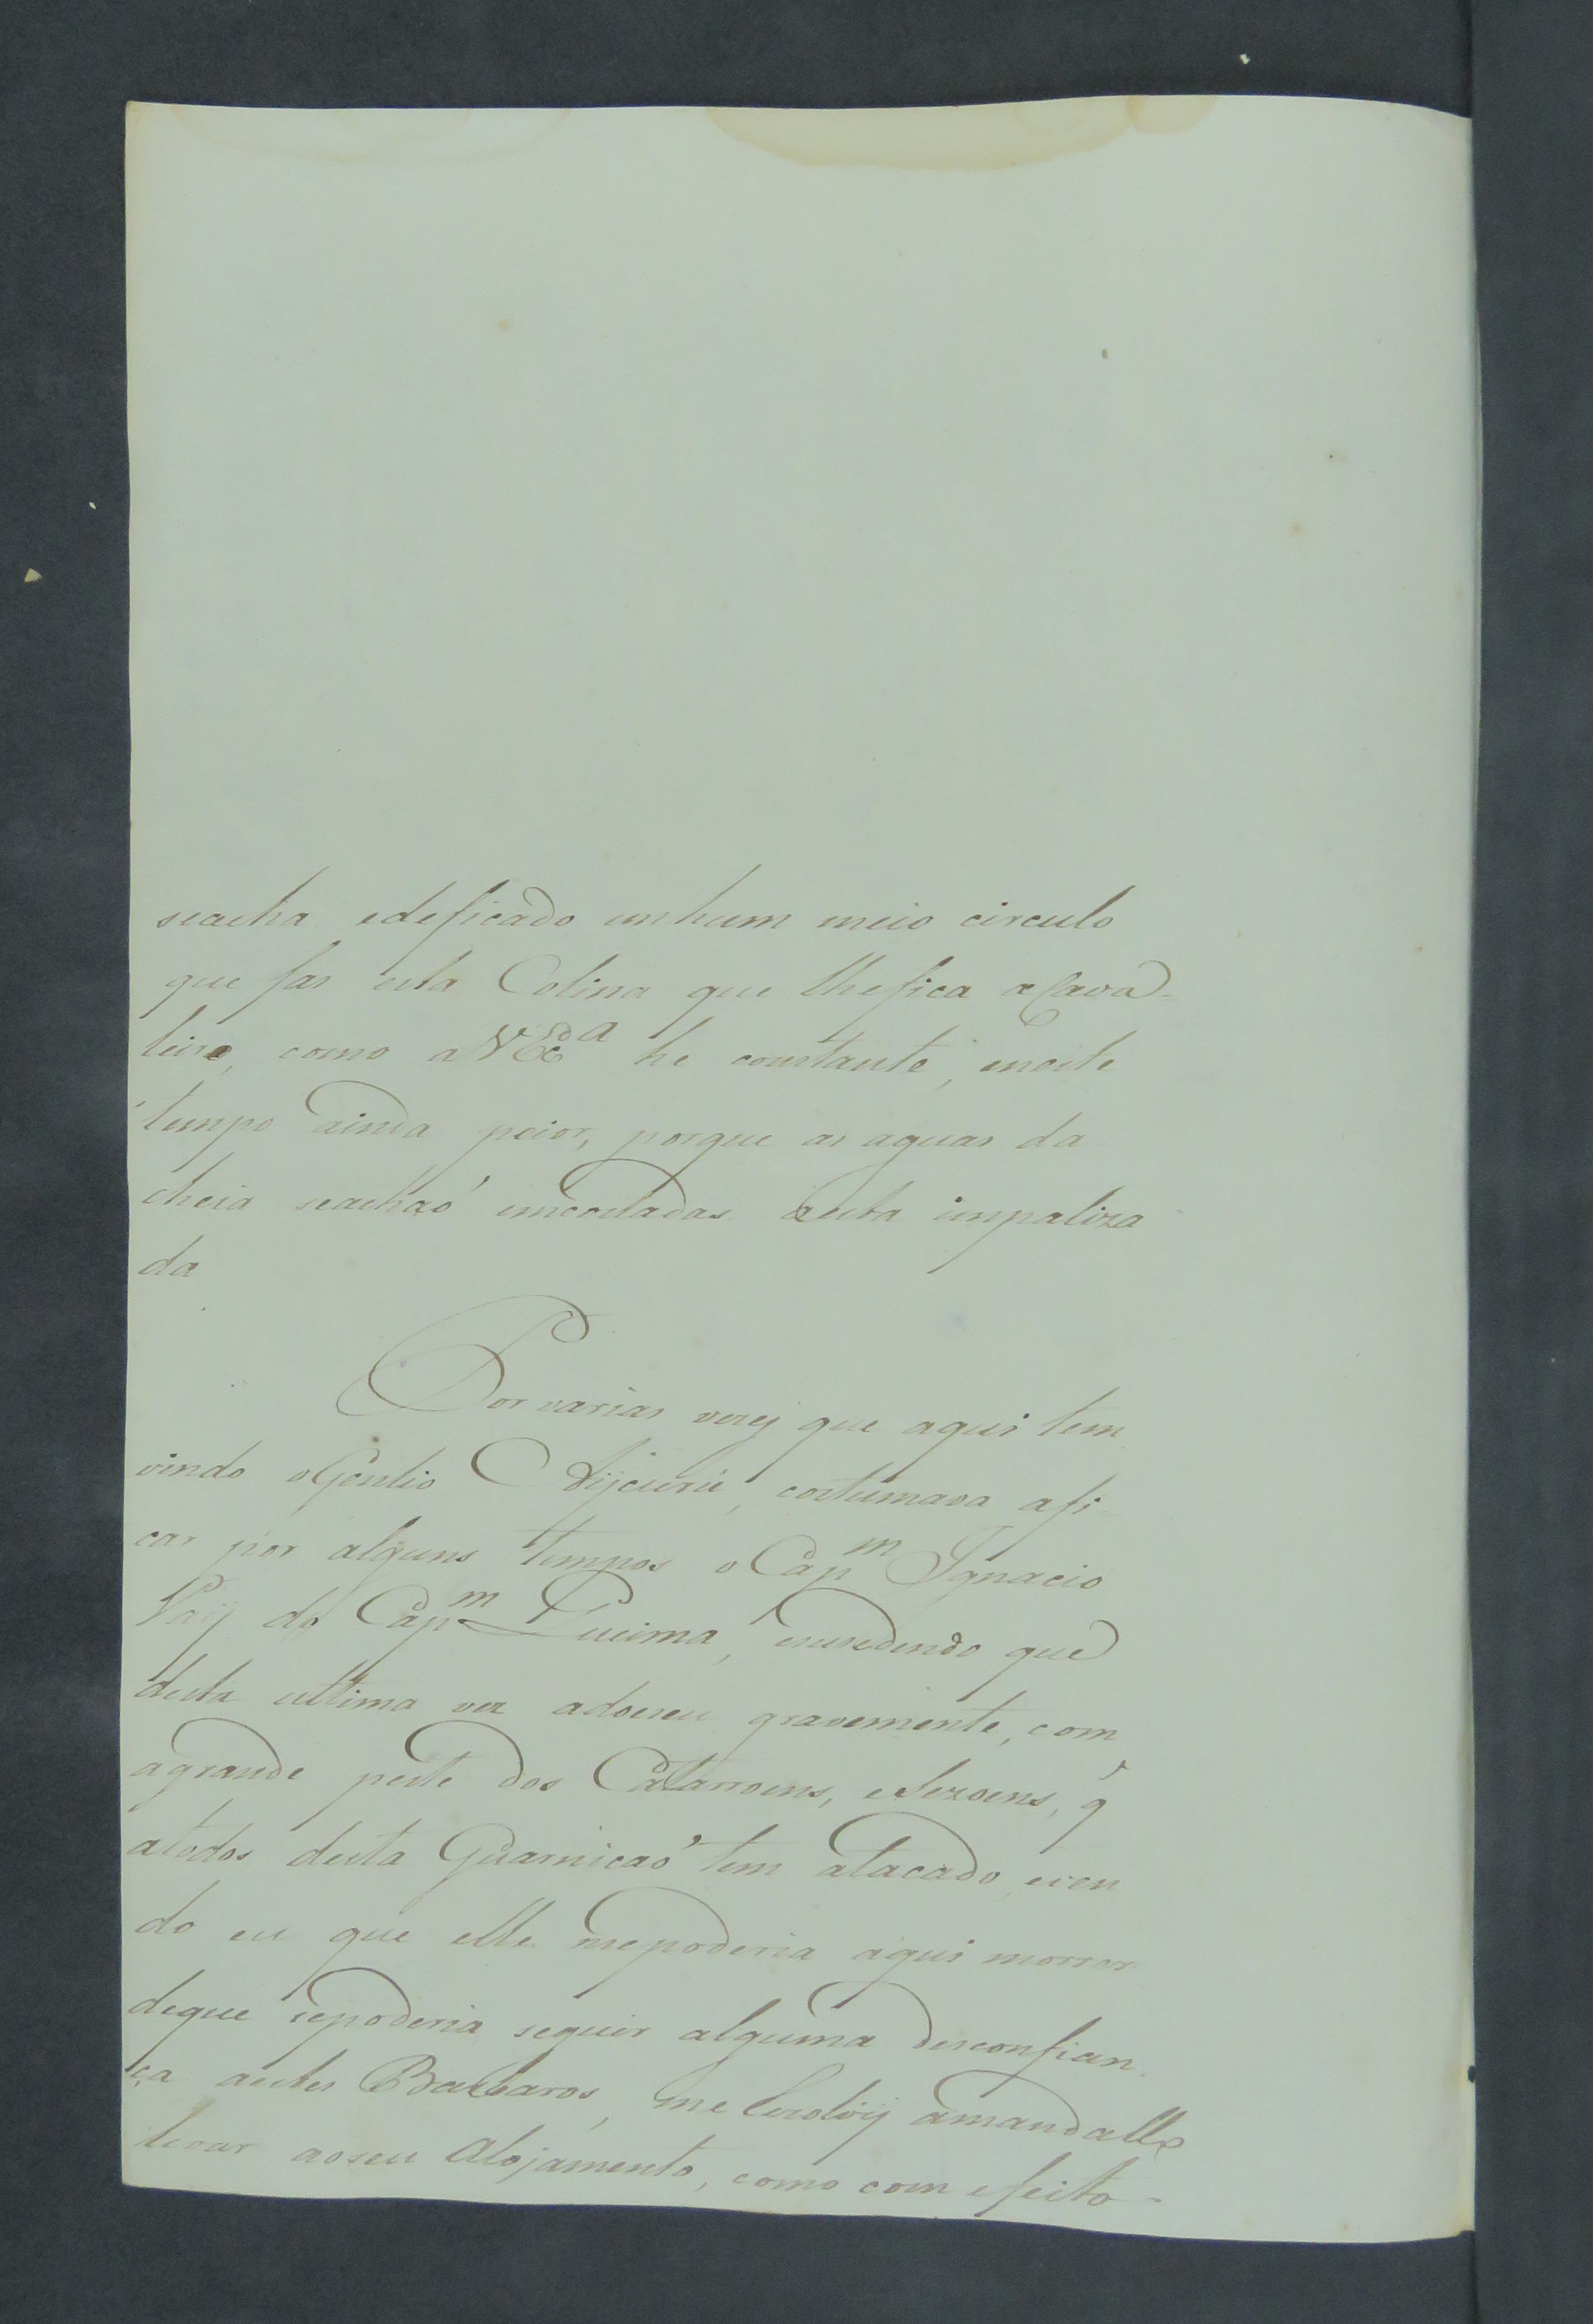 seacha edeficado emhum meio circulo
que fas esta Colina que lhefica a Cava-
leiro, como aVExa he constante, eneste
tempo ainda peior, porque as aguas da
cheia seachaõ emcostadas aesta impaliza
da
Por varias vezes que aqui tem
vindo oGentio Aÿcurú, costumava afi-
car por alguns tempos o Capm Ignacio
Paÿ do Capm Queima, sucedendo que
desta ultima vez adoeseu gravemente, com
agrande peste dos Catarroens, eSezoens, q̃
atodos desta Guarnicaõ tem atacado, even
do eu que elle mepoderia aqui morrer
deque sepoderia seguir alguma desconfian
ça aestes Barbaros, me Rezolvÿ amandallo
levar aoseu Alojamento, como com efeito